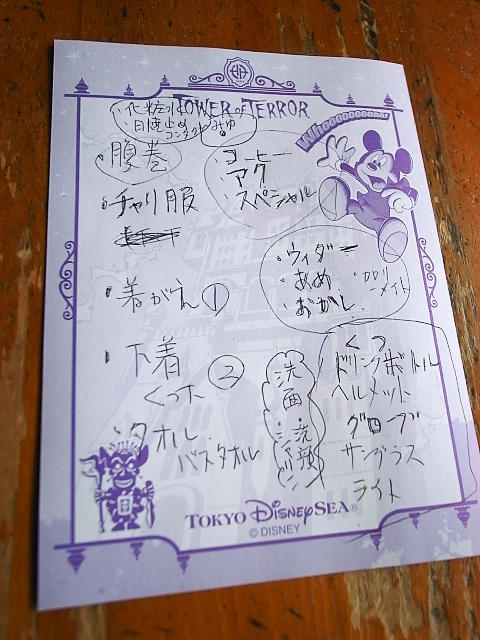 TOWER of TERROR
Whoooooooooa
・化粧水
日焼止め
コンタクト
みゆ
・腹巻
・チャリ服
・着がえ①
・下着②
くつ下
・タオル
バスタオル
・コーヒー
・アク
・スペシャル
・ウィダー
・あめ
・カロリーメイト
・おかし
くつ
ドリンクボトル
ヘルメット
グローブ
サングラス
ライト
洗面・洗顔
シャリン
TOKYO DisneySEA®
© DISNEY